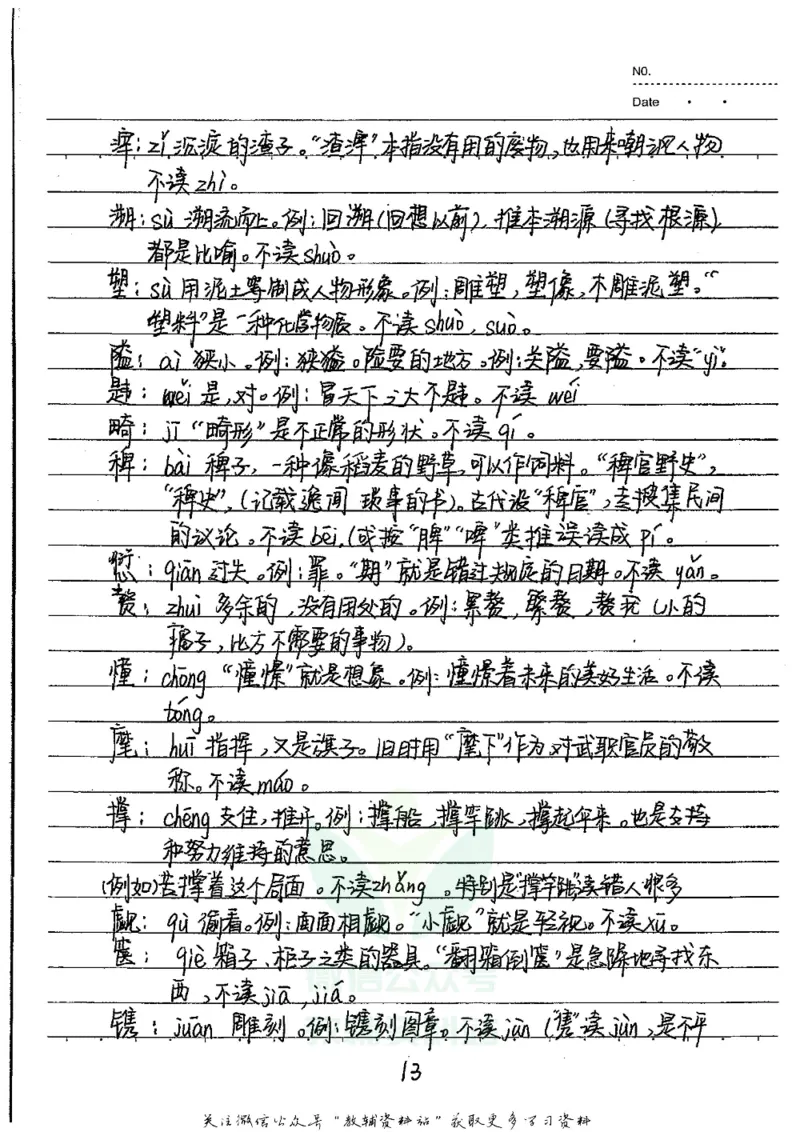 NO.
Date
滓：zǐ 沉淀的渣子。“渣滓”本指没有用的废物，也用来嘲讽人物
不读zhǐ。
溯：sù 溯流而上。例：回溯（回想以前），推本溯源（寻找根源）
都是比喻。不读shuò。
塑：sù 用泥土等制成人物形象。例：雕塑，塑像，木雕泥塑。“
塑料”是一种化学物质。不读shuò，suò。
隘：ài 狭小。例：狭隘。险要的地方。例：关隘，要隘。不读“yì”。
韪：wěi 是，对。例：冒天下之大不韪。不读 wéi
畸：jī “畸形”是不正常的形状。不读qí。
稗：bài 稗子，一种像稻麦的野草，可以作饲料。“稗官野史”，
“稗史”，（记载逸闻 琐事的书）。古代设“稗官”，去搜集民间
的议论。不读bēi，（或按“脾”“啤”类推误读成pí。
愆：qiān 过失。例：罪。“期”就是错过规定的日期。不读yǎn。
赘：zhuì 多余的，没有用处的。例：累赘，繁赘，赘疣（小的
瘤子，比方不需要的事物）。
憧：chōng “憧憬”就是想象。例：憧憬着未来的美好生活。不读
tóng。
麾：huī 指挥，又是旗子。旧时用“麾下”作为对武职官员的敬
称。不读máo。
撑：chēng 支住，推开。例：撑船，撑竿跳，撑起伞来。也是支持
和努力维持的意思。
（例如）苦撑着这个局面。不读zhǎng。特别是“撑竿跳”读错人很多
觑：qù 偷看。例：面面相觑。“小觑”就是轻视。不读xū。
箧：qiè 箱子、柜子之类的器具。“翻箱倒箧”是急降地寻找东
西，不读jiā，jiá。
镌：juān 雕刻。例：镌刻图章。不读jùn（“隽”读jùn，是不平
13
关注微信公众号“教辅资料站”获取更多学习资料
微信公众号